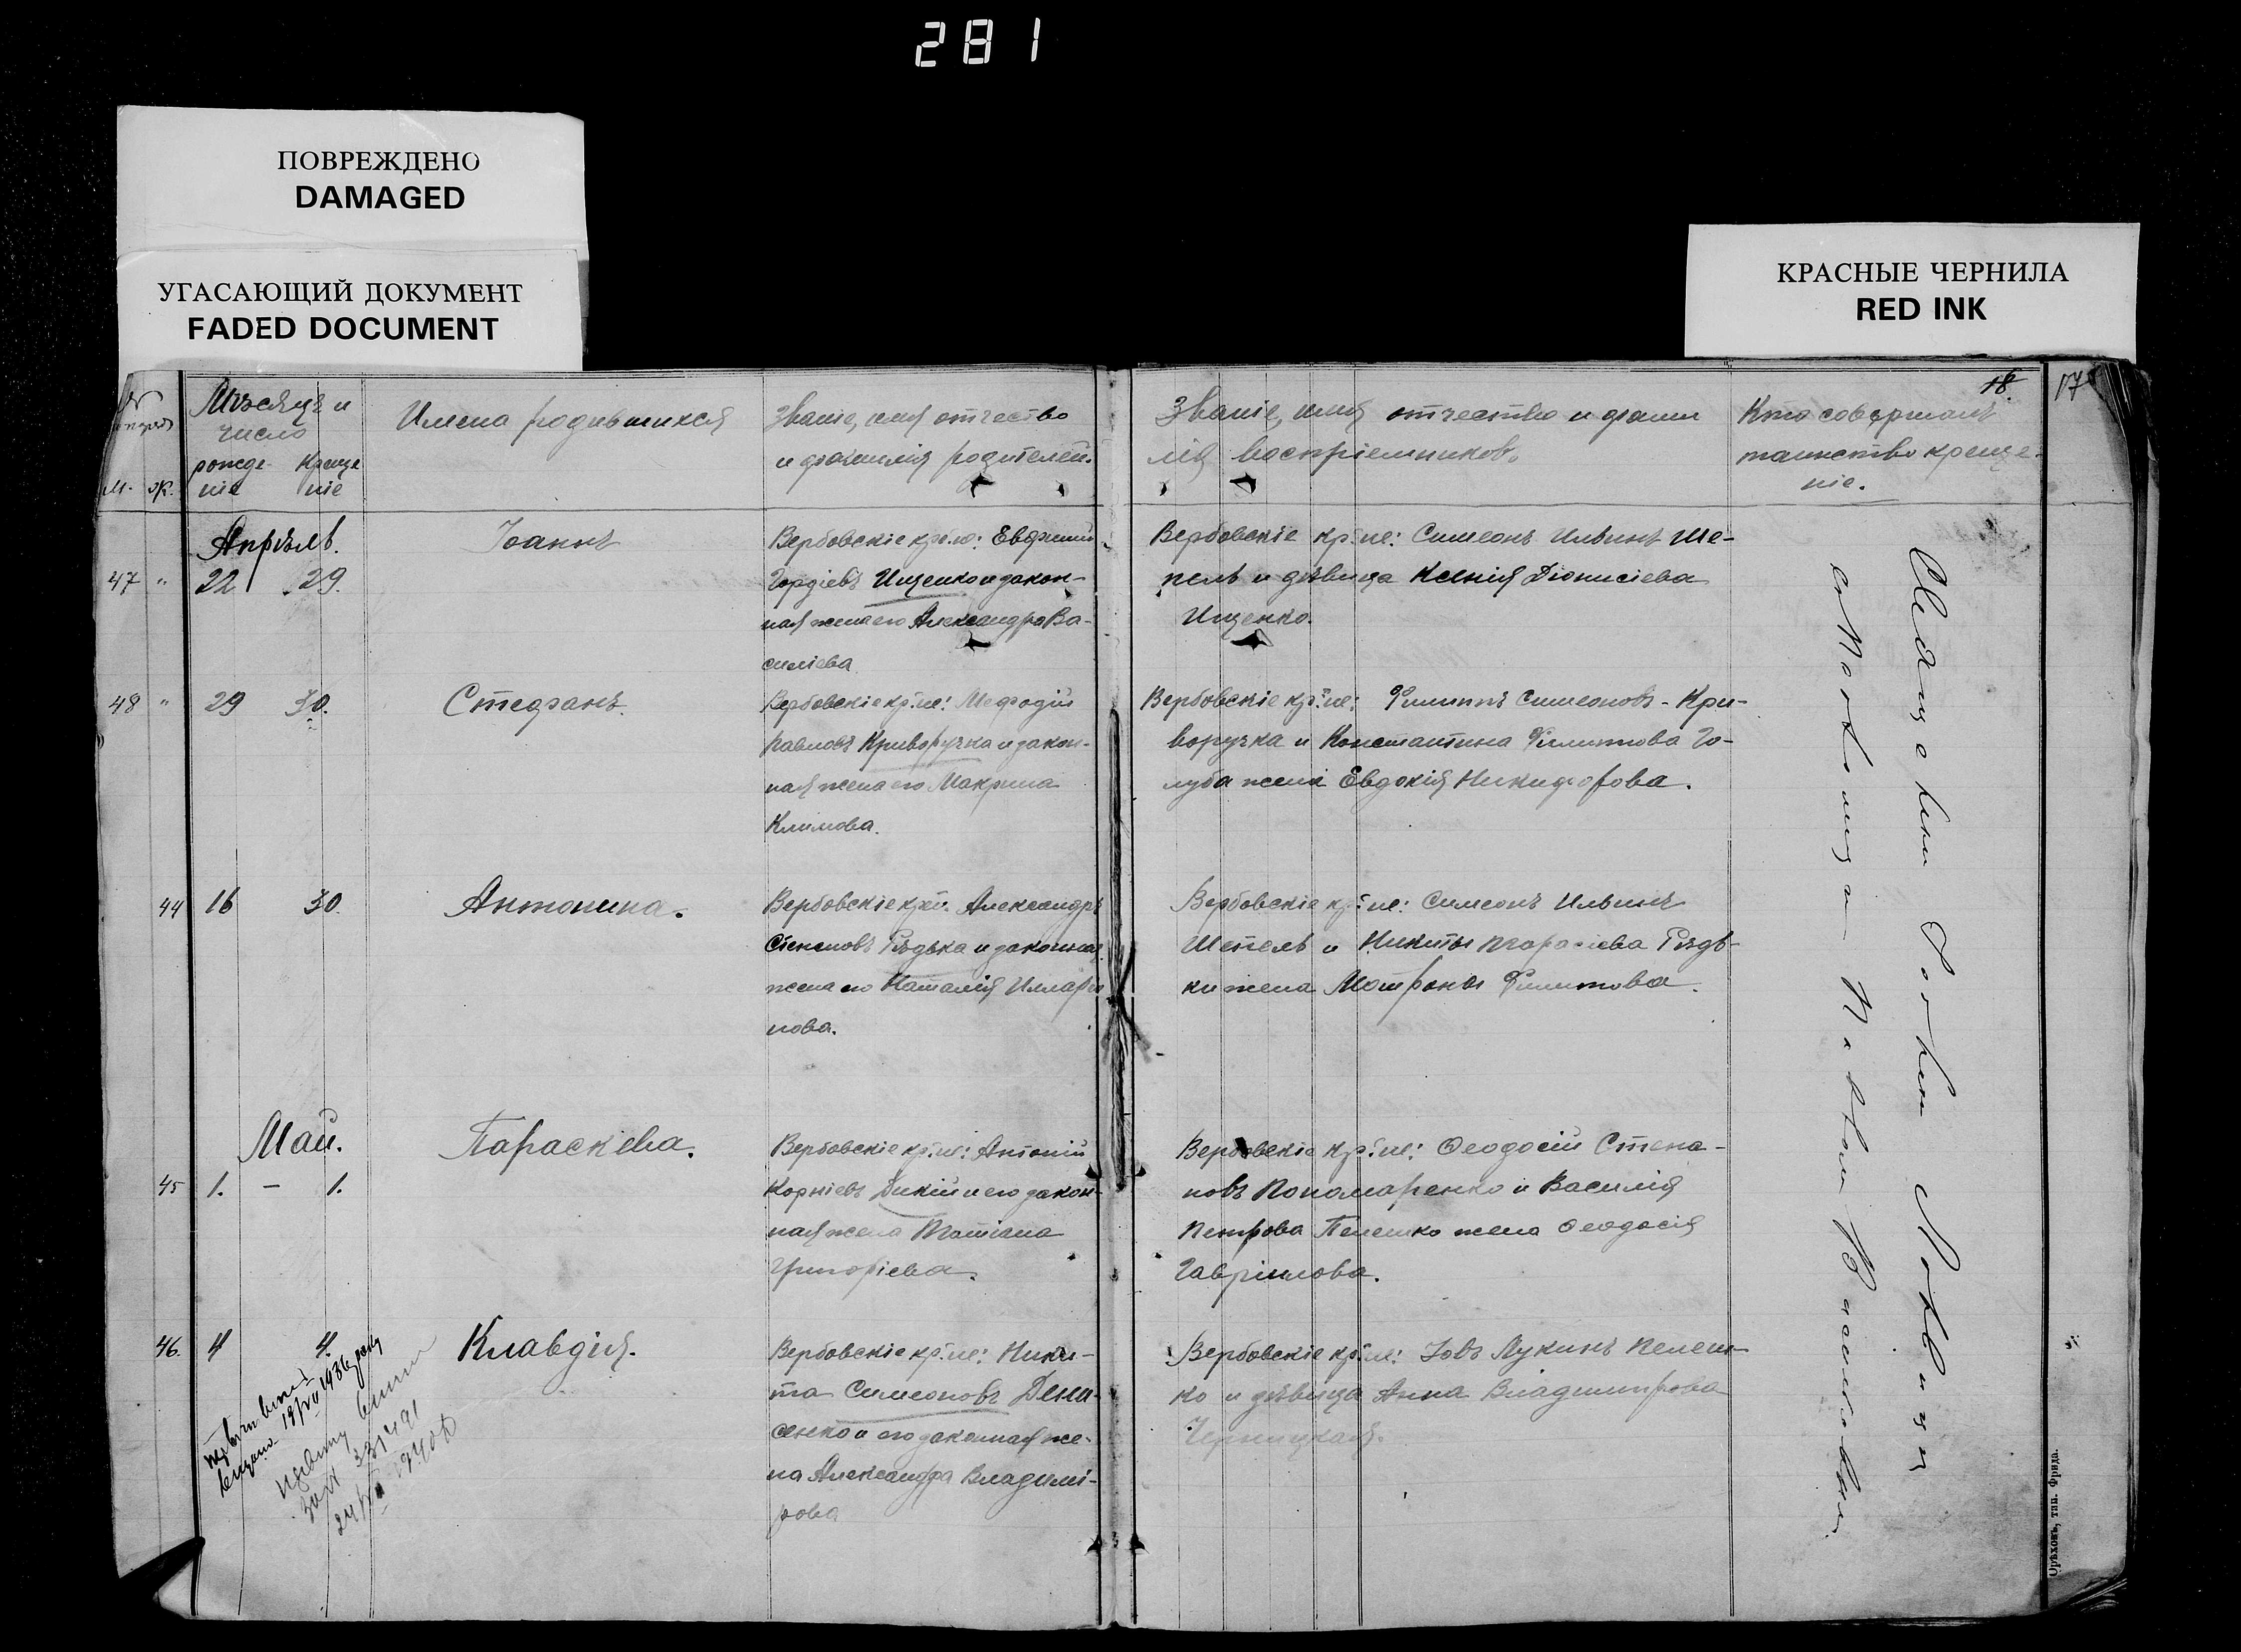 281
ПОВРЕЖДЕНО
DAMAGED
УГАСАЮЩИЙ ДОКУМЕНТ
FADED DOCUMENT
КРАСНЫЕ ЧЕРНИЛА
RED INK
Мѣсяцъ и
число
рожде- Креще
ніе ніе
м. ж.
Имена родившихся
Званіе, имя отчество
и фамилія родителей.
Званіе, имя отчество и фами
лія воспріемниковъ.
Кто совершалъ
таинство креще-
ніе.
18. 17
Апрѣль.
47 " 22 29.
Іоаннъ
Вербовскіе кр.не: Евфимій
Гордіевъ Ищенко и закон-
ная жена его Александра Ва-
силіева
Вербовскіе кр.не: Симеонъ Ильинъ Ше-
пель и дѣвица Ксенія Діонисіева
Ищенко.
48 " 29 30.
Стефанъ.
Вербовскіе кр.не: Мефодій
Павловъ Криворучка и закон-
ная жена его Макрина
Климова.
Вербовскіе кр.не: Филиппъ Симеоновъ - Кри-
воручка и Константина Филиппова Го-
луба жена Евдокія Никифорова.
44 16 30.
Антонина.
Вербовскіе кр.не: Александръ
Степановъ Рѣдька и законная
жена его Наталія Илларіо
нова.
Вербовскіе кр.не: Симеонъ Ильинъ
Шепель и Никиты Тарасіева Рѣдь-
ки жена Матрона Филиппова.
Май.
45 1. — 1.
Параскева.
Вербовскіе кр.не: Антоній
Корніевъ Дикій и его закон-
ная жена Татіана
Григоріева.
Вербовскіе кр.не: Ѳеодосій Степа-
новъ Пономаренко и Василія
Петрова Пелешко жена Ѳеодосія
Гавріилова.
46. 4 4.
Клавдія.
Вербовскіе кр.не: Ники-
та Симеоновъ Дени-
сенко и его законная же-
на Александра Владимі-
рова
Вербовскіе кр.не: Іовъ Лукинъ Пелеш-
ко и дѣвица Анна Владимірова
Черницкая.
1936 року
331491
1940
Священникъ
съ Псаломщикомъ
Орѣховъ, тип. Фрида.